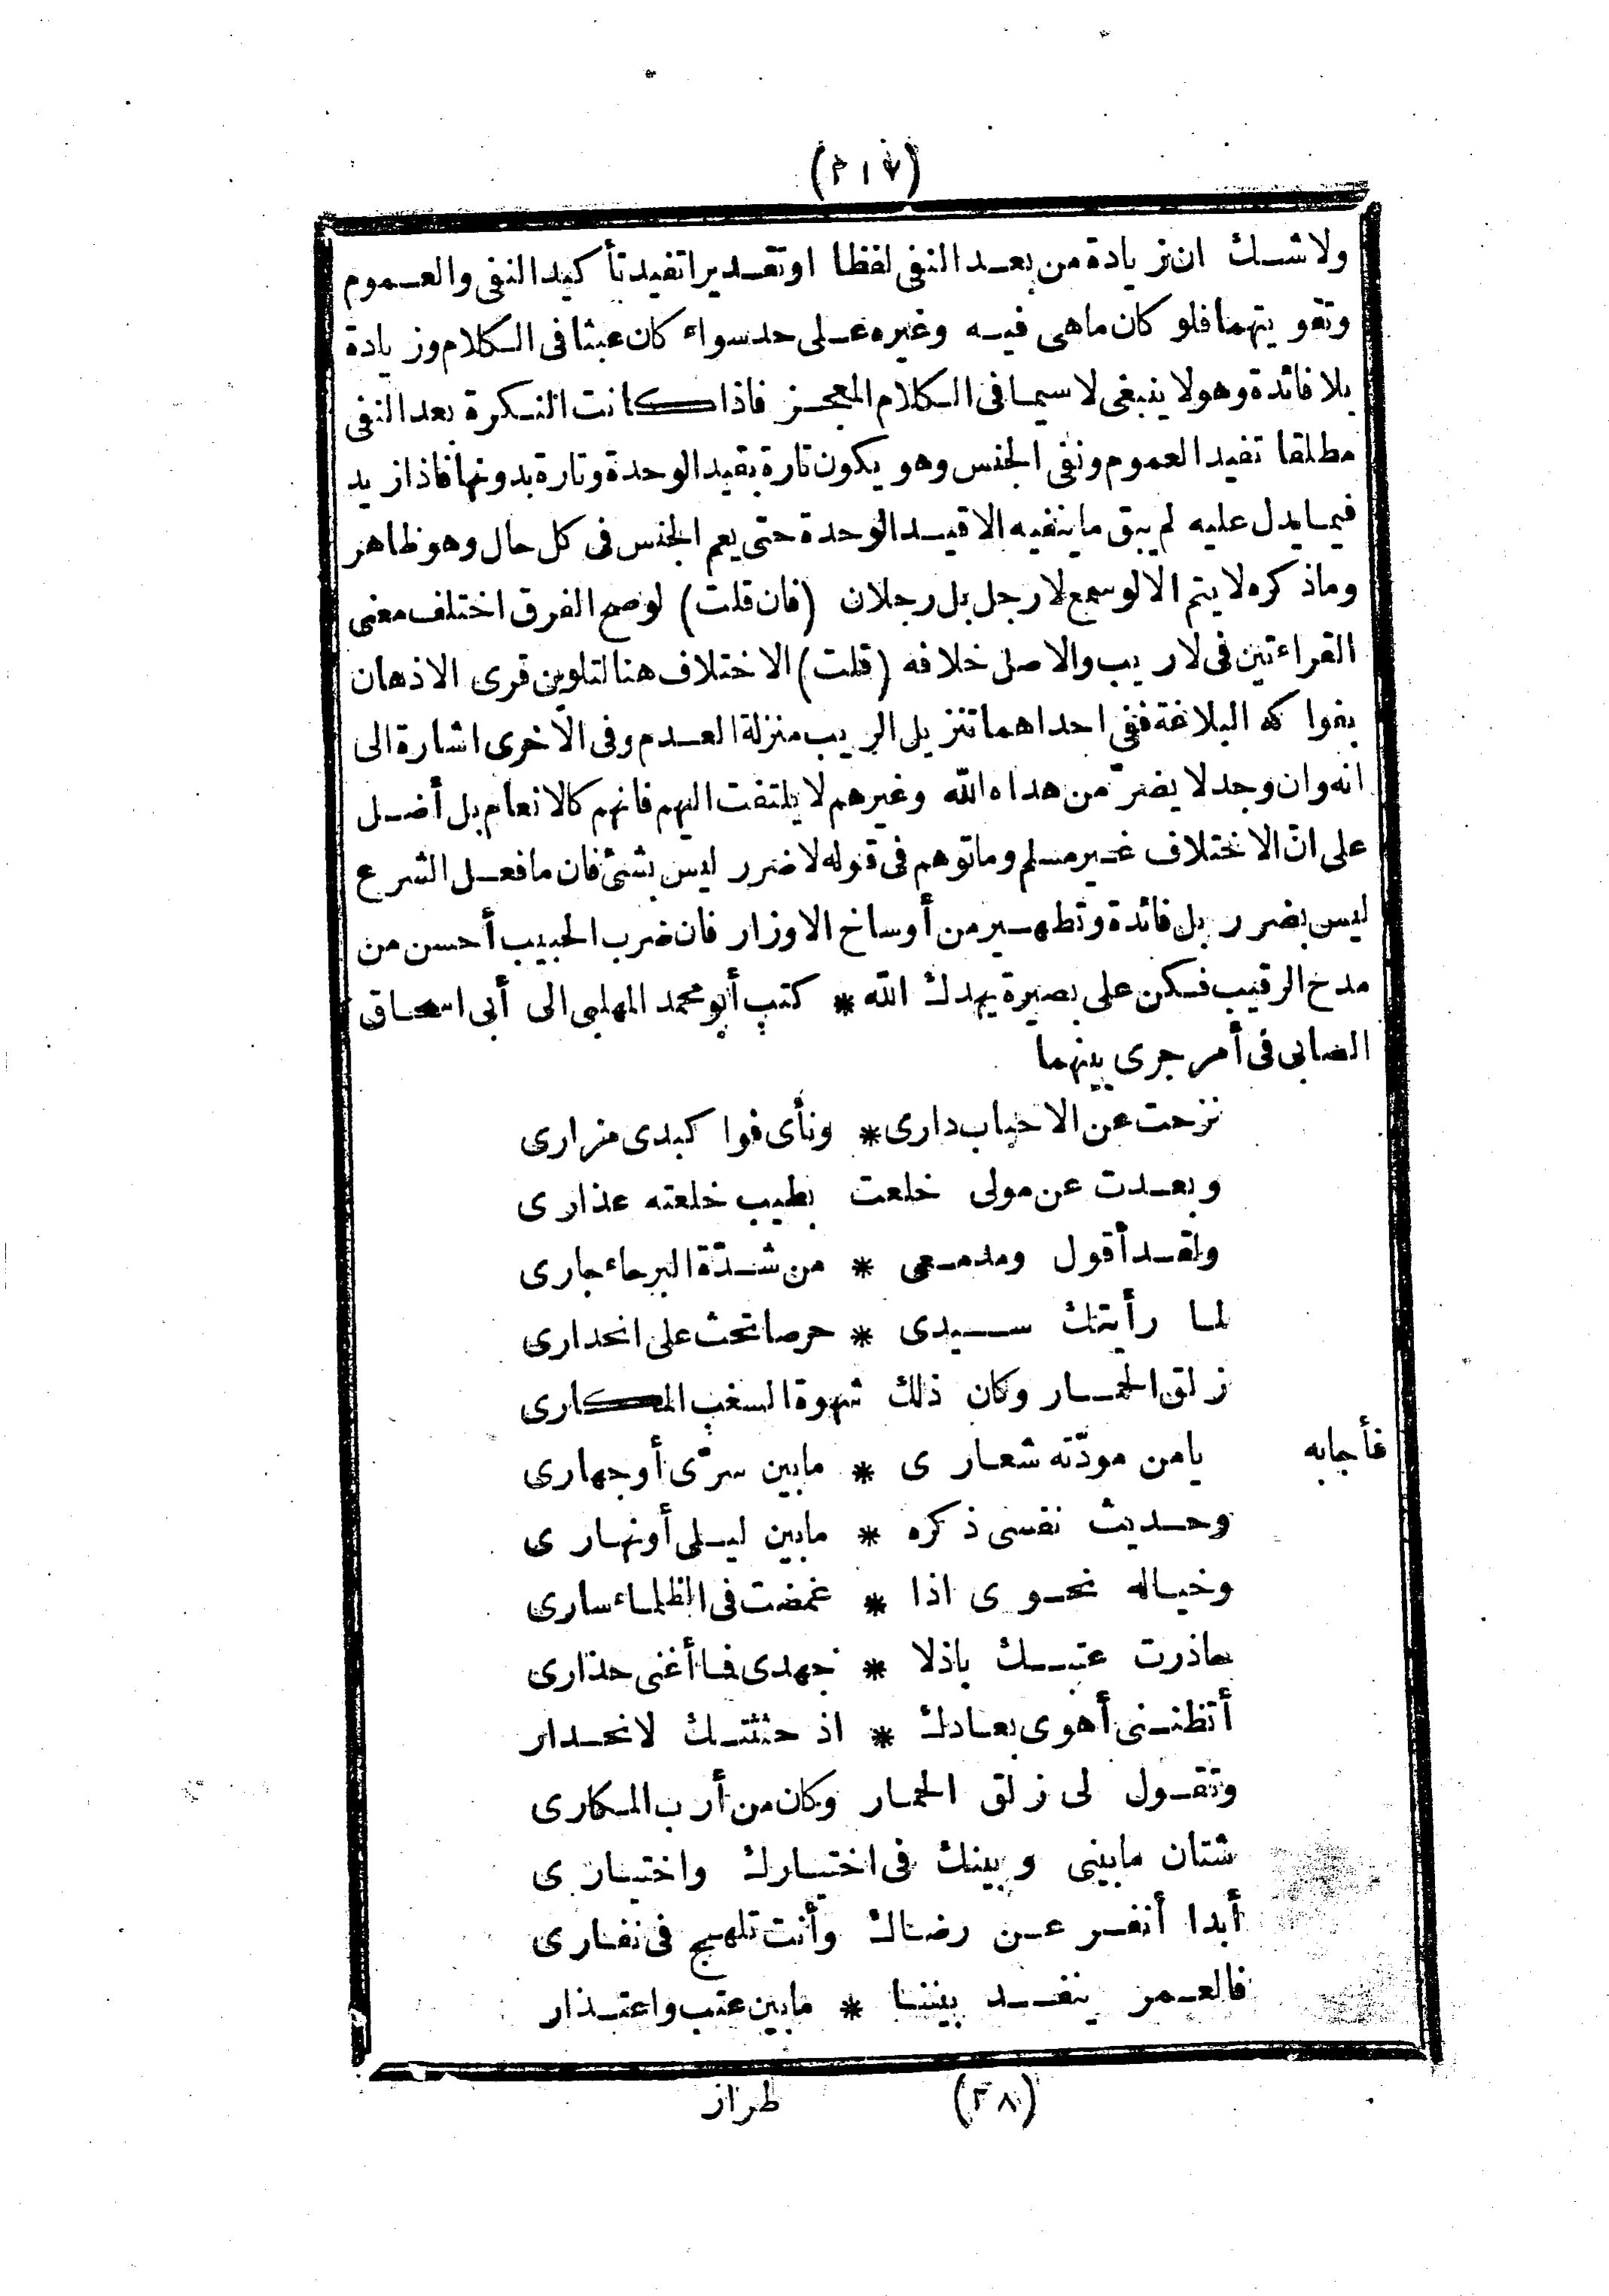 (٢١٧)
ولا شك ان زيادة من بعد النفى لفظا او تقديرا تفيد تأكيد النفى والعموم
وتقويتهما فلو كان ما هى فيه وغيره على حد سواء كان عبثا فى الكلام وزيادة
بلا فائدة وهو لا ينبغى لا سيما فى الكلام المعجز فاذا كانت النكرة بعد النفى
مطلقا تفيد العموم ونفى الجنس وهو يكون تارة بقيد الوحدة وتارة بدونها فاذا زيد
فيما يدل عليه لم يبق ما ينفيه الا قيد الوحدة حتى يعم الجنس فى كل حال وهو ظاهر
وما ذكره لا يتم الا لو سمع لا رجل بل رجلان (فان قلت) لو صح الفرق اختلف معنى
القراءتين فى لا ريب والاصل خلافه (قلت) الاختلاف هنا لتلوين قرى الاذهان
بفواكه البلاغة ففى احداهما تنزيل الريب منزلة العدم وفى الاخرى اشارة الى
انه وان وجد لا يضرّ من هداه الله وغيرهم لا يلتفت اليهم فانهم كالانعام بل أضل
على انّ الاختلاف غير مسلم وما توهم فى قوله لا ضرر ليس بشئ فان ما فعل الشرع
ليس بضرر بل فائدة وتطهير من أوساخ الاوزار فان ضرب الحبيب أحسن من
مدح الرقيب فكن على بصيرة يهدك الله * كتب أبو محمد المهلبى الى أبى اسحاق
الصابى فى أمر جرى بينهما
نزحت عن الاحباب دارى * ونأى فوا كبدى مزارى
وبعدت عن مولى خلعت بطيب خلعته عذارى
ولقد أقول ومدمعى * من شدّة البرحاء جارى
لما رأيتك سيدى * حرصا تحث على انحدارى
زلق الحمار وكان ذلك شهوة السغب المكارى
فأجابه يا من مودّته شعارى * ما بين سرّى أو جهارى
وحديث نفسى ذكره * ما بين ليلى أو نهارى
وخياله نحوى اذا * غمضت فى الظلماء سارى
حاذرت عتبك باذلا * جهدى فما أغنى حذارى
أتظننى أهوى بعادك * اذ حثثتك لانحدار
وتقول لى زلق الحمار وكان من أرب المكارى
شتان ما بينى وبينك فى اختيارك واختيارى
أبدا أنفر عن رضاك وأنت تلهج فى نفارى
فالعمر ينفد بيننا * ما بين عتب واعتذار
(٢٨) طراز